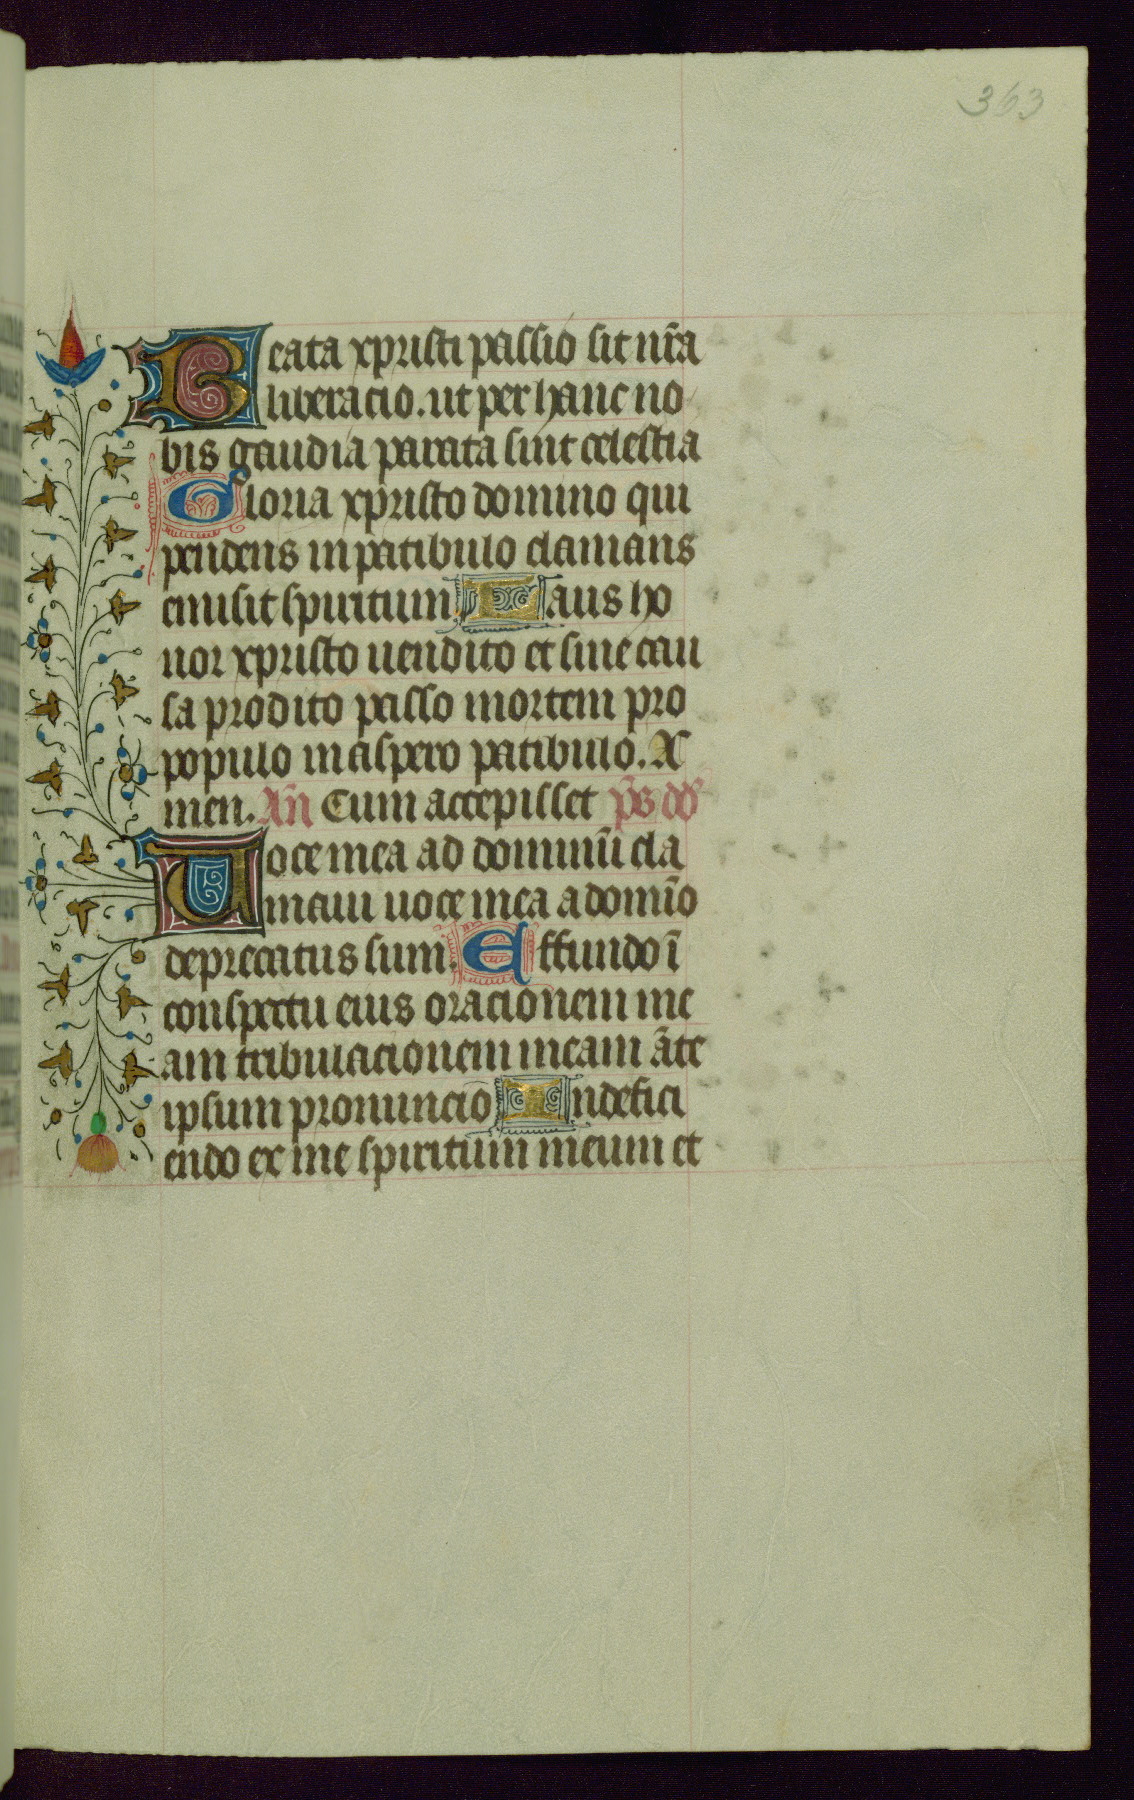 363
Beata xpristi passio sit nr̃a
liberacio. ut per hanc no
bis gaudia parata sint celestia
Gloria xpristo domino qui
pendens in patibulo clamans
emisit spiritum Laus ho
nor xpristo uendito et sine cau
sa prodito passo mortem pro
populo in aspero patibulo. A
men. Añ Cum accepisset p̃s dd̃
Uoce mea ad dominũ cla
maui uoce mea a domĩo
deprecatus sum. Effundo ĩ
conspectu eius oracionem me
am tribulacionem meam ãte
ipsum pronuncio In defici
endo ex me spiritum meum et